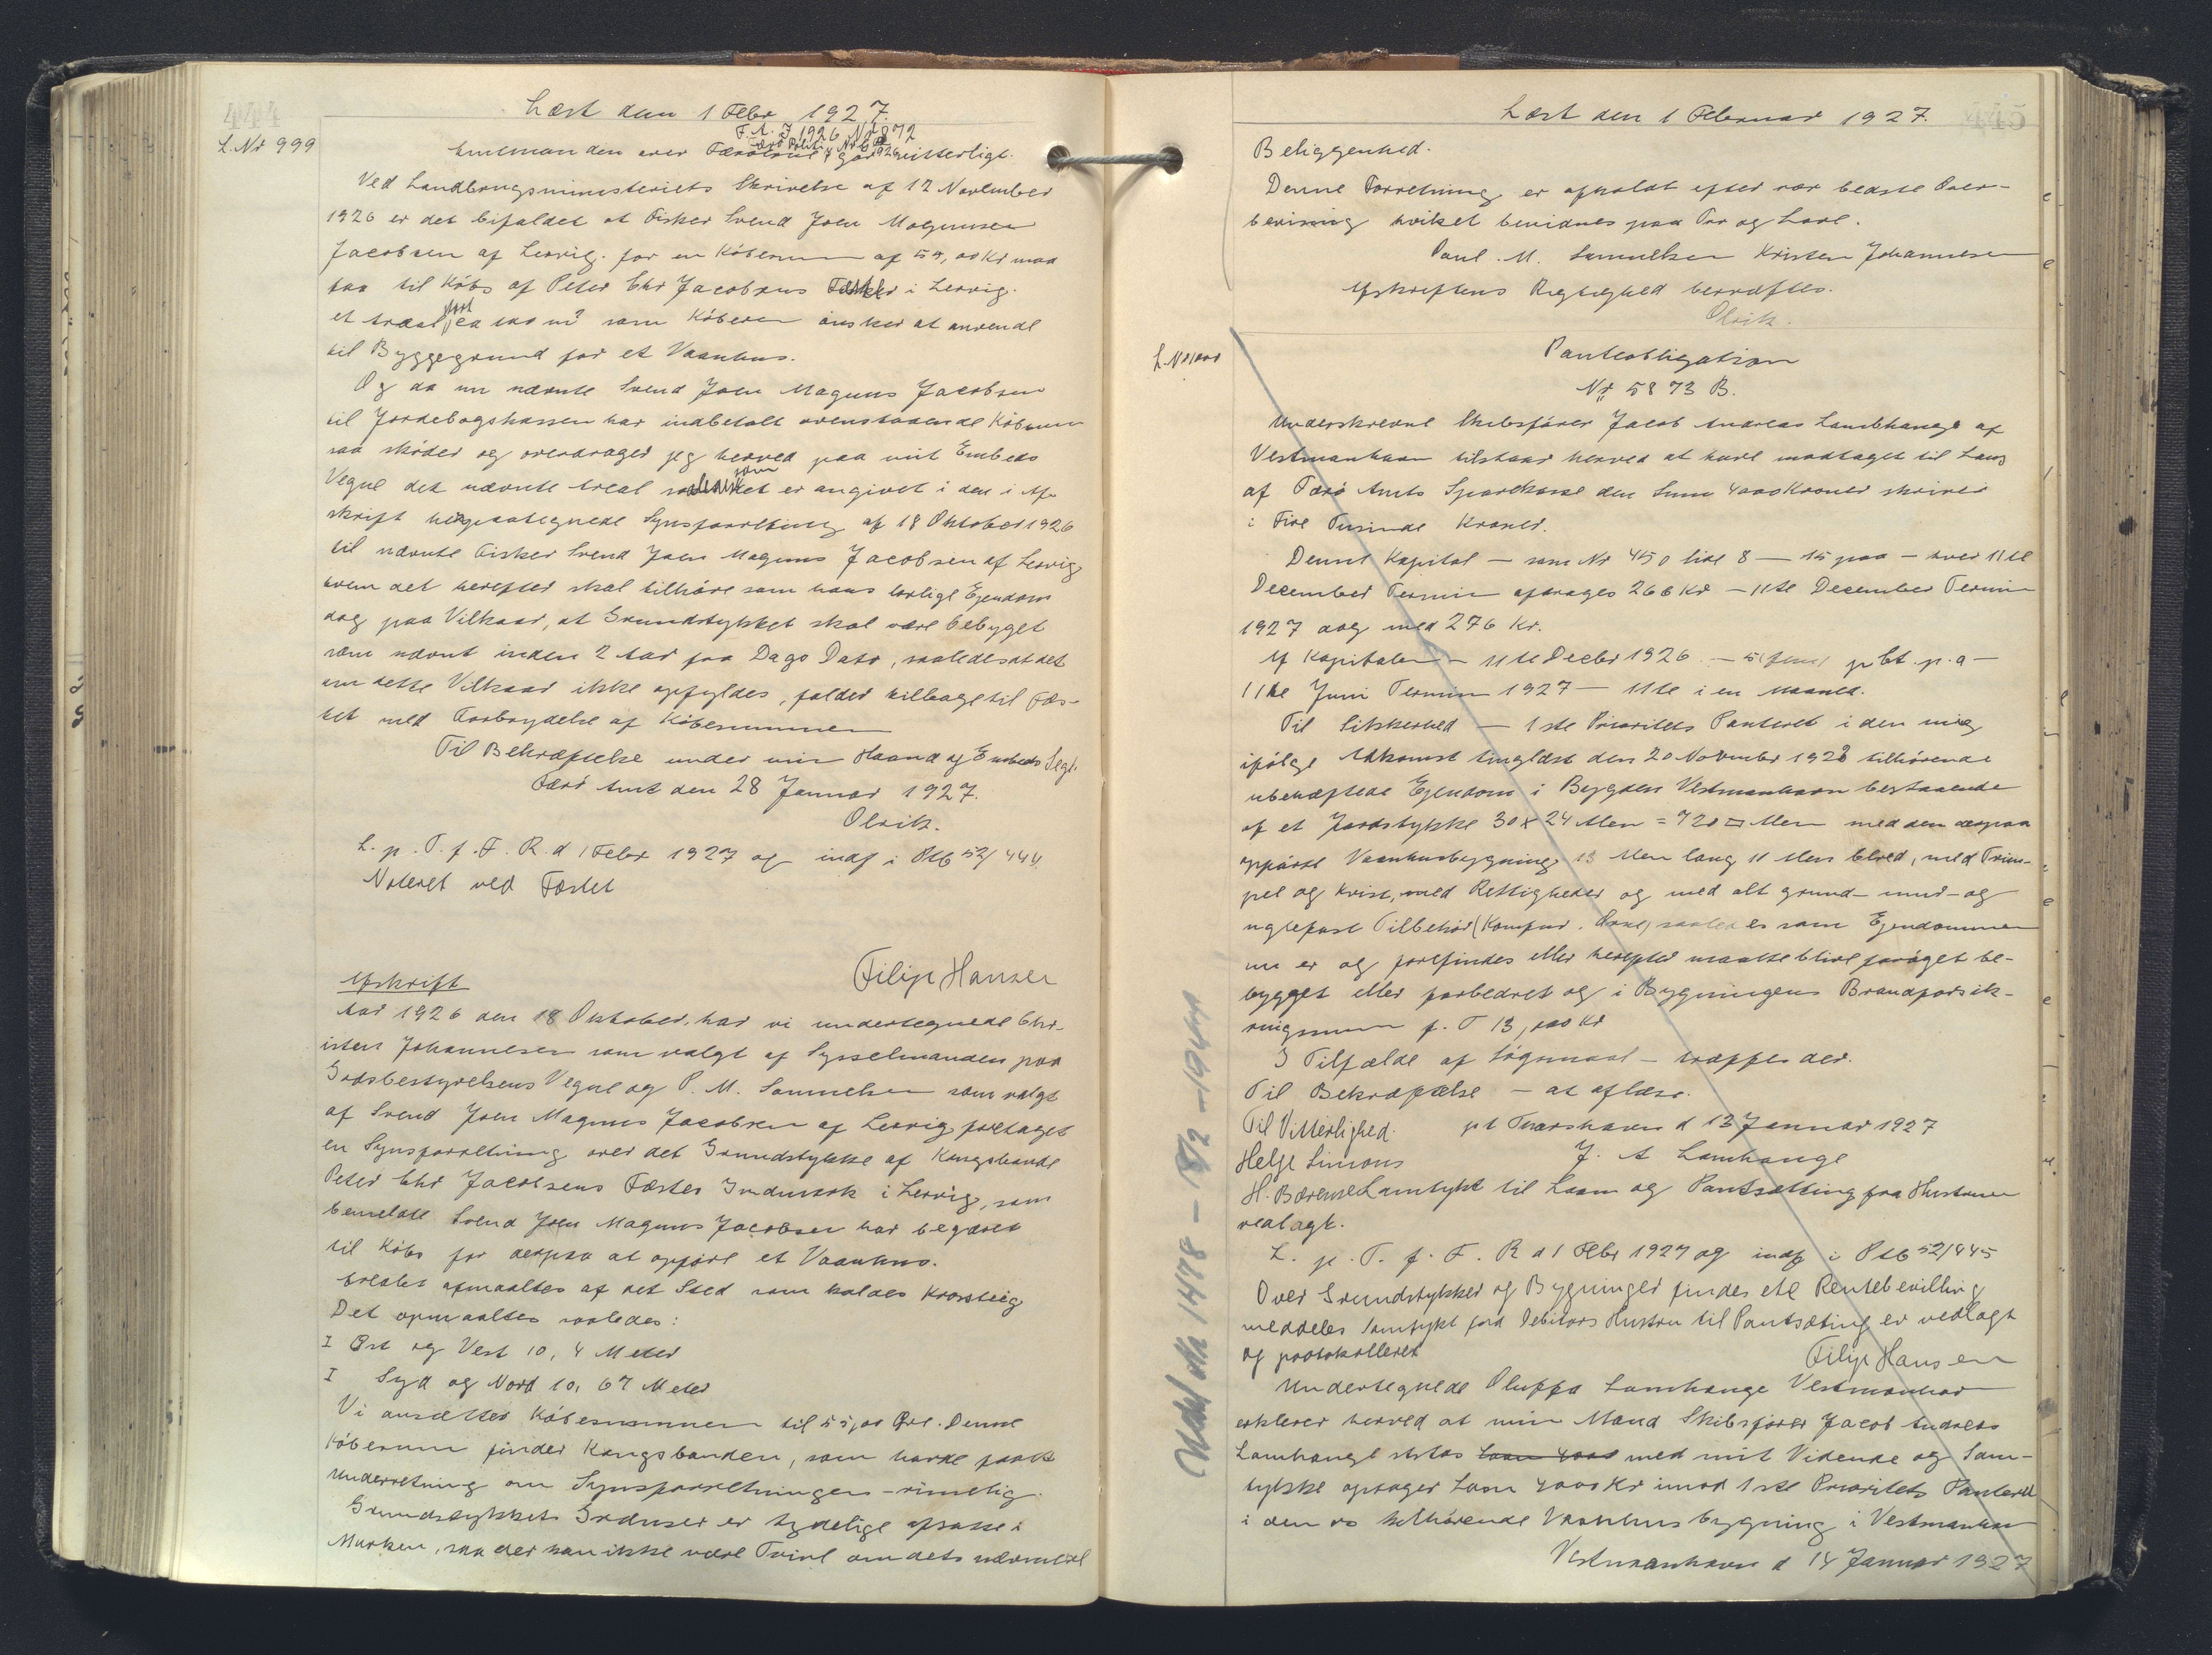 444
Læst den 1 Febr 1927.
L. Nr 999
F. A. J 1926 Nr 872
Amtmanden over Færøerne gør vitterligt.
Ved Landbrugsministeriets Skrivelse af 12 November
1926 er det bifaldet at Fisker Svend Joen Magnussen
Jacobsen af Lervig. for en Købesum af 55,00 Kr maa
faa til Købs af Peter Chr Jacobsens Fæste i Lervig.
et areal paa som Køberen ønsker at anvende
til Byggegrund for et Vaanhus.
Og da nu nævnte Svend Joen Magnus Jacobsen
til Jordebogskassen har indbetalt ovenstaaende Købesum
saa skøder og overdrager jeg herved paa mit Embeds
Vegne det nævnte Areal saaledes som det er angivet i den i Af-
skrift hergaategnede Synsforretning af 18 Oktober 1926
til nævnte Fisker Svend Joen Magnus Jacobsen af Lervig
hvem det herefter skal tilhøre som hans lovlige Ejendom
dog paa Vilkaar, at Grundstykket skal være bebygget
som nævnt inden 2 Aar fra Dags Dato, saaledes at det
om dette Vilkaar ikke opfyldes, falder tilbage til Fæs-
tet med Forbrydelse af Købesummen
Til Bekræftelse under min Haand og Embeds Segl.
Færø Amt den 28 Januar 1927.
Olrik.
L. p. T. f. F. R. d 1 Febr 1927 og indf i Ptb 52/444
Noteret ved Fæstet
Filip Hansen
Afskrift
Aar 1926 den 18 Oktober. har vi undertegnede Chr-
isten Johannesen som valgt af Sysselmanden paa
Godsbestyrelsens Vegne og P. M. Samuelsen som valgt
af Svend Joen Magnus Jacobsen af Lervig foretaget
en Synsforretning over det Grundstykke af Kongsbonde
Peter Chr Jacobsens Fæstes Indmark i Lervig, som
bemeldte Svend Joen Magnus Jacobsen har begæret
til Købs for derpaa at opføre et Vaanhus.
Arealet afmaaltes af det Sted som kaldes Krossteig
Det opmaaltes saaledes:
I Øst og Vest 10,4 Meter
I Syd og Nord 10,67 Meter
Vi ansætter Købesummen til 55,00 Øre. Denne
Købesum finder Kongsbonden, som havde faaet
Underretning om Synsforretningen - rimelig.
Grundstykkets Grænser er tydelige afsatte i
Marken, saa der kan ikke være Tvivl om dets nærmere
445
Læst den 1 Februar 1927.
Beliggenhed.
Denne Forretning er afholdt efter vor bedste Over-
bevisning hvilket bevidnes paa Tro og Love.
Poul. M. Samuelsen Kristen Johannesen
Afskriftens Rigtighed bekræftes.
Olrik.
L. Nr 1000
Panteobligation
Nr 5873 B.
Underskrevne Skibsfører Jacob Andreas Lamhauge af
Vestmanhavn tilstaar herved at have modtaget til Laans
af Færø Amts Sparekasse den Sum 4000 Kroner skriver
i Fire Tusinde Kroner.
Denne Kapital — som Nr 450 litr 8 — 15 paa — hver 11te
December Termin afdrages 266 Kr — 11te December Termin
1927 dog med 276 Kr.
Af Kapitalen — 11te Decbr 1926 — 5 (fem) p Ct. p. a —
11te Juni Termin 1927 — 11te i en Maaned.
Til Sikkerhed — 1ste Prioritets Panteret i den mig
ifølge Adkomst tinglæst den 20 November 1923 tilhørende
ubehæftede Ejendom i Bygden Vestmanhavn bestaaende
af et Jordstykke 30 x 24 Alen = 720 □ Alen med den derpaa
opførte Vaanhusbygning 13 Alen lang 11 Alen bred, med Trem-
pel og Kvist, med Rettigheder og med alt grund- mur- og
nagelfast Tilbehør (Komfur. Ovne) saaledes som Ejendommen
nu er og forefindes eller herefter maatte blive forøget be-
bygget eller forbedret og i Bygningens Brandforsik-
ringssum p. T 13,000 Kr
I Tilfælde af Søgsmaal — træffes der.
Til Bekræftelse — at aflæse.
Til Vitterlighed. pt Thorshavn d 13 Januar 1927
Helge Simons J. A Lamhauge
H. Bærensen Samtykt til Laan og Pantsætting fra Hustruen
vedlagt.
L. p. T. f. F. R d 1 Febr 1927 og indf i Ptb 52/445
Over Grundstykker og Bygninger findes ete Rentebevilling
meddeles Samtykt fra Debitors Hustru til Pantsæting er vedlagt
og protokolleret
Filip Hansen
Undertegnede Oluffa Lamhauge Vestmanhavn
erklærer herved at min Mand Skibsfører Jacob Andreas
Lamhauge ststds Laan 4000 med mit Vidende og Sam-
tykke optager Laan 4000 Kr imod 1ste Prioritets Panteret
i den os tilhørende Vaanhusbygning i Vestmanhavn
Vestmanhavn d 14 Januar 1927
Udsl. 1478 — 8/2 - 1944